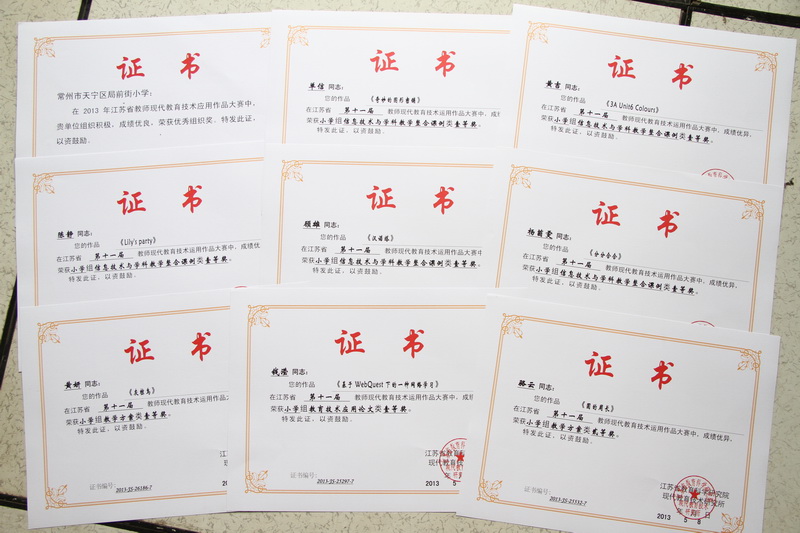 证 书
常州市天宁区局前街小学：
在 2013 年江苏省教师现代教育技术应用作品大赛中，
贵单位组织积极，成绩优良，荣获优秀组织奖。特发此证，
以资鼓励。
证 书
单信 同志：
您的作品 《奇妙的图形密铺》
在江苏省 第十一届 教师现代教育技术运用作品大赛中，成绩
荣获小学组信息技术与学科教学整合课例类壹等奖。
特发此证，以资鼓励。
证 书
黄吉 同志：
您的作品 《3A Unit6 Colours》
在江苏省 第十一届 教师现代教育技术运用作品大赛中，成绩优异，
荣获小学组信息技术与学科教学整合课例类壹等奖。
特发此证，以资鼓励。
证 书
陈静 同志：
您的作品 《Lily's party》
在江苏省 第十一届 教师现代教育技术运用作品大赛中，成绩优
荣获小学组信息技术与学科教学整合课例类壹等奖。
特发此证，以资鼓励。
证 书
顾雄 同志：
您的作品 《汉诺塔》
在江苏省 第十一届 教师现代教育技术运用作品大赛中，
荣获小学组信息技术与学科教学整合课例类壹等奖。
特发此证，以资鼓励。
证 书
杨茵雯 同志：
您的作品 《分分合合》
在江苏省 第十一届 教师现代教育技术运用作品大赛中，成绩优异，
荣获小学组信息技术与学科教学整合课例类壹等奖。
特发此证，以资鼓励。
证 书
黄妍 同志：
您的作品 《友谊鸟》
在江苏省 第十一届 教师现代教育技术运用作品大赛中，成绩优
荣获小学组教学方案类壹等奖。
特发此证，以资鼓励。
江
现
证书编号： 2013-JS-26186-7
20
证 书
钱滢 同志：
您的作品 《基于 WebQuest 下的一种网络学习》
在江苏省 第十一届 教师现代教育技术运用作品大赛中，成绩
荣获小学组教育技术应用论文类壹等奖。
特发此证，以资鼓励。
江苏省教育科
现代教育技
证书编号： 2013-JS-25297-7
2013 5
证 书
骆云 同志：
您的作品 《圆的周长》
在江苏省 第十一届 教师现代教育技术运用作品大赛中，成绩优异，
荣获小学组教学方案类贰等奖。
特发此证，以资鼓励。
江苏省教育科学研究院
现代教育技术研究所
证书编号： 2013-JS-25532-7
2013 年 5 月 8 日